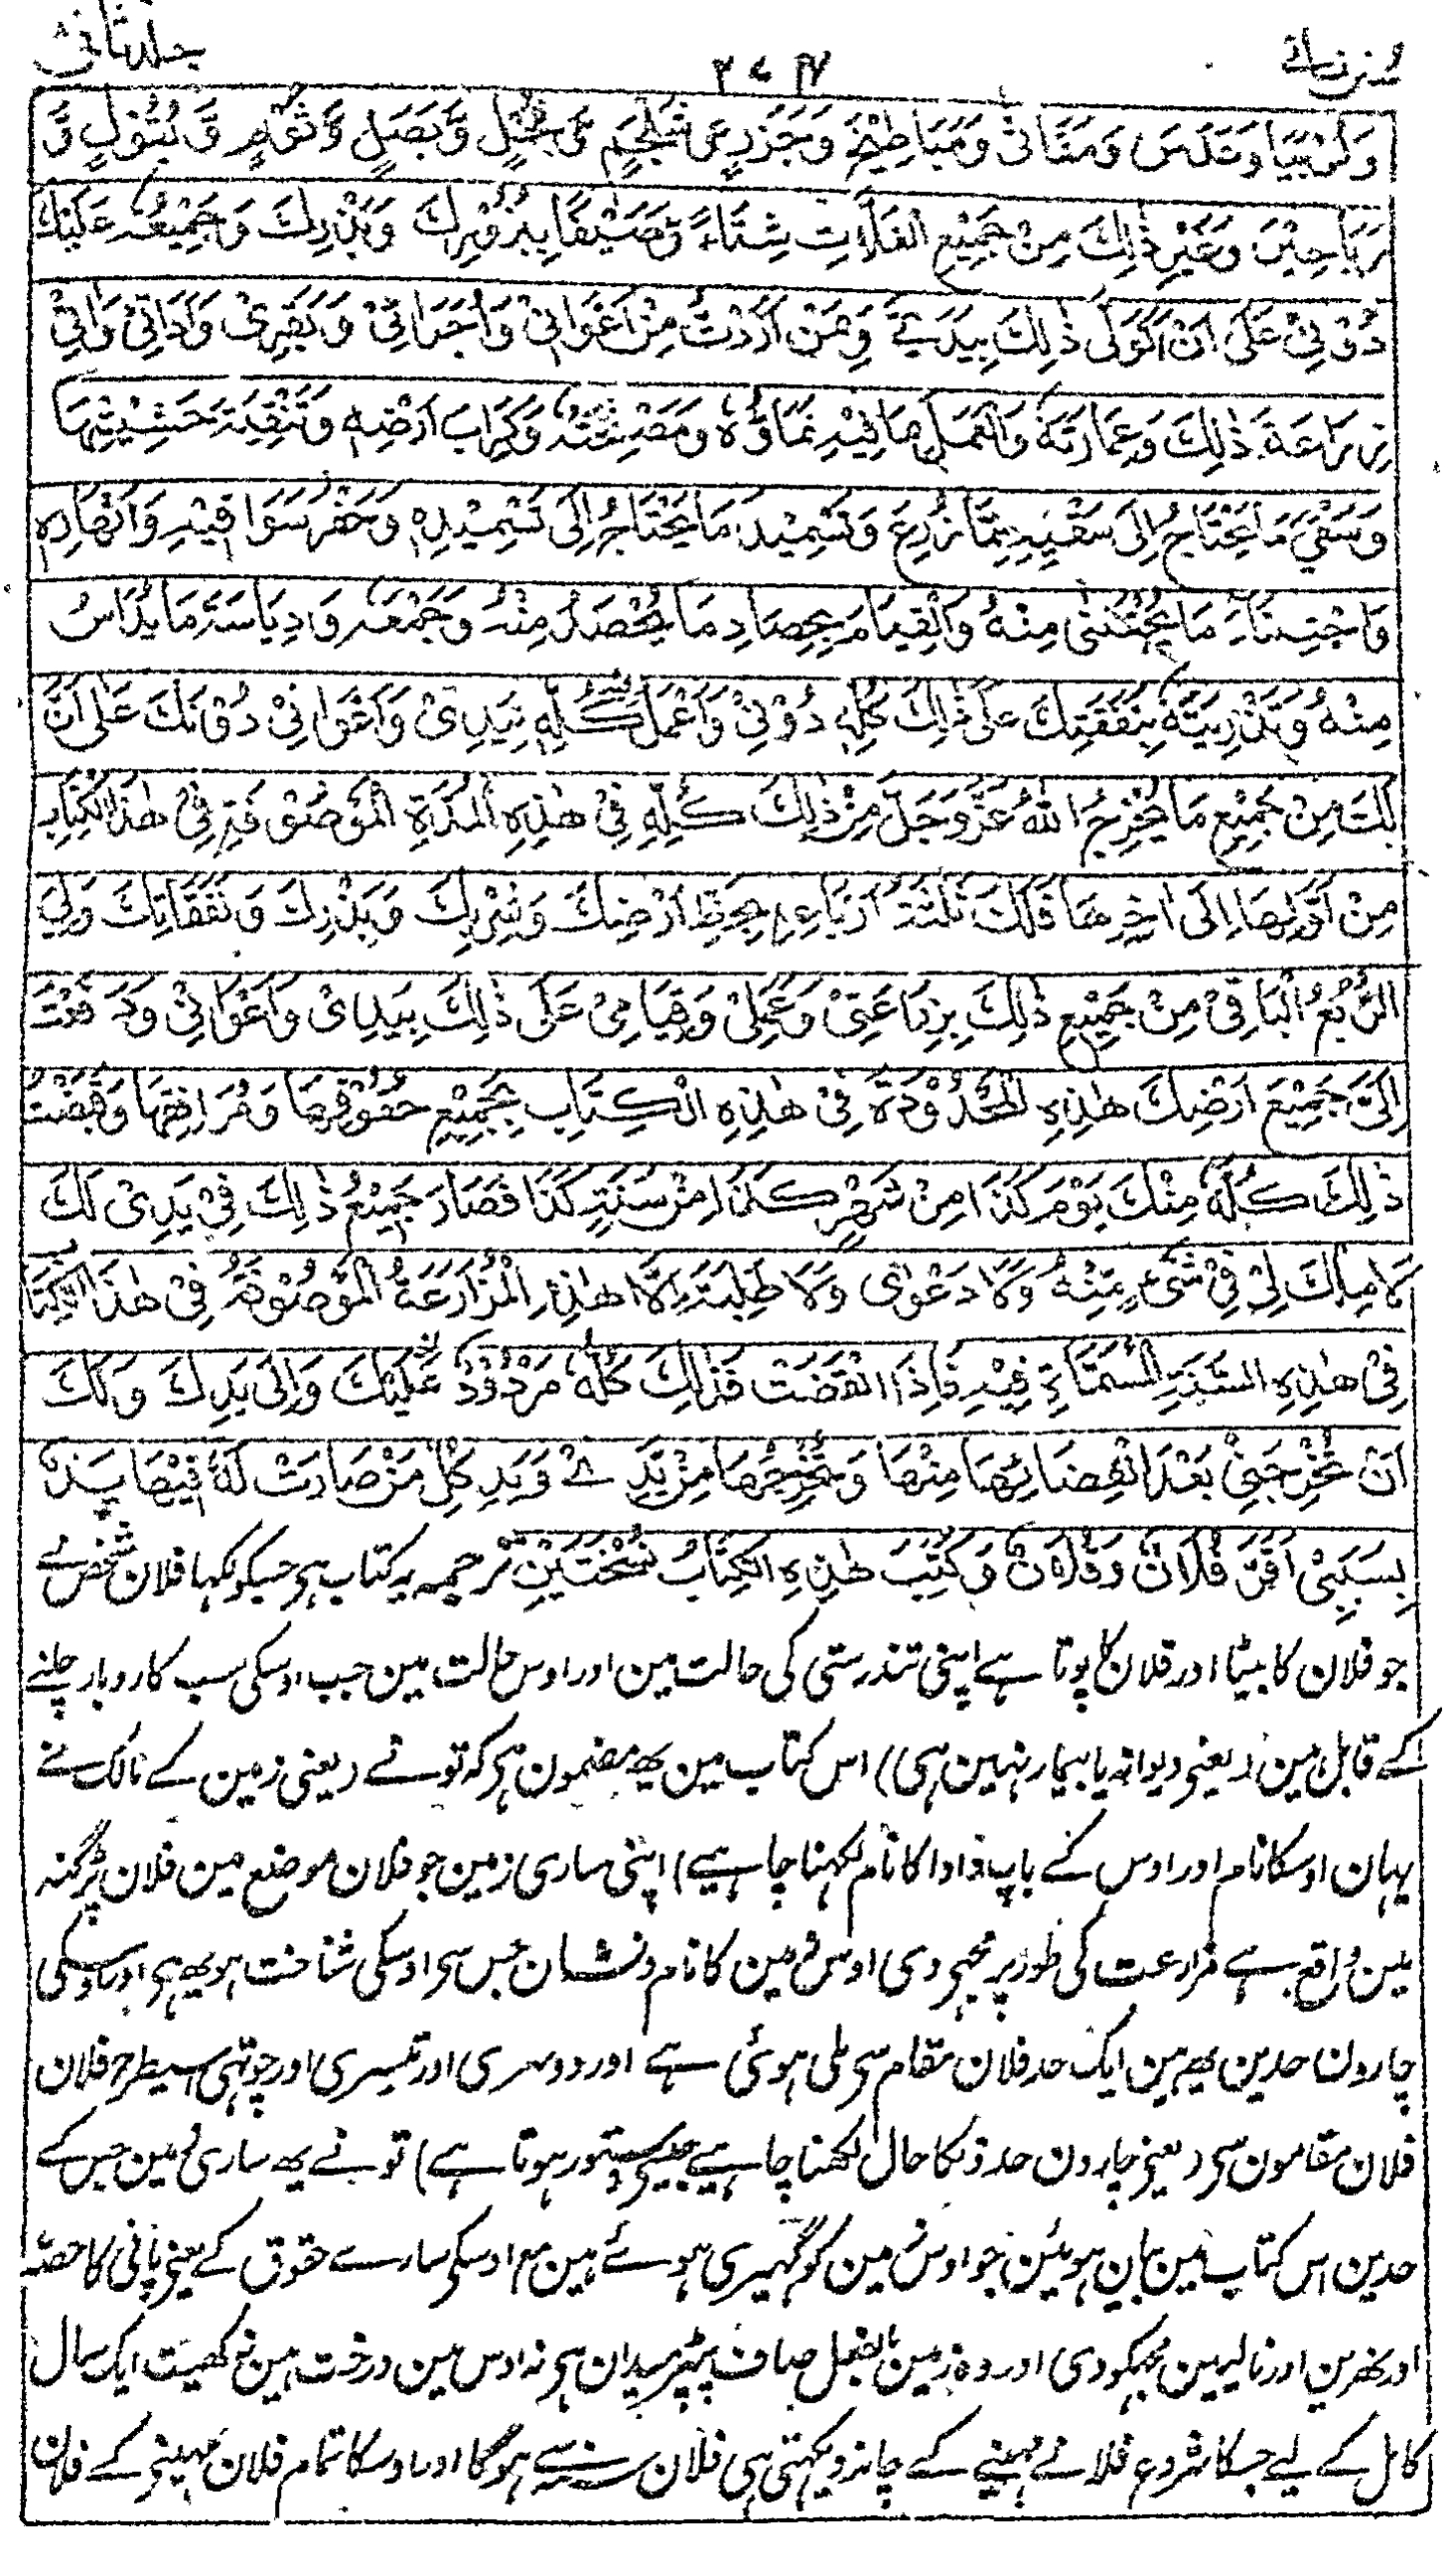 سنن نسائی ۲۷۴ جلد ثانی
وَكُرْسُفِيًّا وَعَدَسٍ وَمَقَاثِي وَمَبَاطِيْخَ وَجَزَرٍ وَشَلْجَمٍ وَفُجْلٍ وَّبَصَلٍ وَّثُوْمٍ وَّبُقُوْلٍ وَّ
رَيَاحِيْنَ وَغَيْرِ ذٰلِكَ مِنْ جَمِيْعِ الْغَلَّاتِ شِتَاءً وَّصَيْفًا بِبُزُوْرِكَ وَبَذْرِكَ وَجَمِيْعُهُ عَلَيْكَ
دُوْنِيْ عَلَى اَنْ اَتَوَلَّى ذٰلِكَ بِيَدَيَّ وَمَنْ اَرَدْتُ مِنْ اَعْوَانِيْ وَاُجَرَائِيْ وَبَقَرِيْ وَاَدَاتِيْ وَاِلٰى
زِرَاعَةِ ذٰلِكَ وَعِمَارَتِهٖ وَالْعَمَلِ مَا فِيْهِ نَمَاؤُهُ وَمَصْلَحَتُهُ وَكِرَابِ اَرْضِهٖ وَتَنْقِيَةِ حَشِيْشِهَا
وَسَقْيِ مَا يَحْتَاجُ اِلَى سَقْيِهٖ مِمَّا زُرِعَ وَتَسْمِيْدِ مَا يَحْتَاجُ اِلَى تَسْمِيْدِهٖ وَحَفْرِ سَوَاقِيْهِ وَاَنْهَارِهٖ
وَاجْتِنَاءِ مَا يُجْتَنٰى مِنْهُ وَالْقِيَامِ بِحِصَادِ مَا يُحْصَدُ مِنْهُ وَجَمْعِهٖ وَدِيَاسَةِ مَا يُدَاسُ
مِنْهُ وَتَذْرِيَتِهٖ بِنَفَقَتِكَ عَلٰى ذٰلِكَ كُلِّهٖ دُوْنِيْ وَاَعْمَلَ كُلِّهٖ بِيَدِيْ وَاَعْوَانِيْ دُوْنَكَ عَلٰى اَنَّ
لَكَ مِنْ جَمِيْعِ مَا يُخْرِجُ اللهُ عَزَّ وَجَلَّ مِنْ ذٰلِكَ كُلِّهٖ فِيْ هٰذِهِ الْمُدَّةِ الْمَوْصُوْفَةِ فِيْ هٰذَا الْكِتَابِ
مِنْ اَوَّلِهَا اِلٰى اٰخِرِهَا فَلَكَ ثَلٰثَةُ اَرْبَاعِهٖ بِحَظِّ اَرْضِكَ وَشِرْبِكَ وَبَذْرِكَ وَنَفَقَاتِكَ وَلِيَ
الرُّبْعُ الْبَاقِيْ مِنْ جَمِيْعِ ذٰلِكَ بِزِرَاعَتِيْ وَعَمَلِيْ وَقِيَامِيْ عَلٰى ذٰلِكَ بِيَدِيْ وَاَعْوَانِيْ وَدَفَعْتَ
اِلَيَّ جَمِيْعَ اَرْضِكَ هٰذِهِ الْمَحْدُوْدَةِ فِيْ هٰذِهِ الْكِتَابِ بِجَمِيْعِ حُقُوْقِهَا وَمَرَافِقِهَا وَقَبَضْتُ
ذٰلِكَ كُلَّهُ مِنْكَ يَوْمَ كَذَا مِنْ شَهْرِ كَذَا مِنْ سَنَةِ كَذَا فَصَارَ جَمِيْعُ ذٰلِكَ فِيْ يَدِيْ لَكَ
لَا مِلْكَ لِيْ فِيْ شَيْءٍ مِّنْهُ وَلَا دَعْوٰى وَلَا طَلِبَةَ اِلَّا هٰذِهِ الْمُزَارَعَةُ الْمَوْصُوْفَةُ فِيْ هٰذَا الْكِتَابِ
فِيْ هٰذِهِ السَّنَةِ الْمُسَمَّاةِ فِيْهِ فَاِذَا انْقَضَتْ فَذٰلِكَ كُلُّهُ مَرْدُوْدٌ عَلَيْكَ وَاِلٰى يَدِكَ وَلَكَ
اَنْ تُخْرِجَنِيْ بَعْدَ انْقِضَائِهَا مِنْهَا وَتُخْرِجَهَا مِنْ يَدِيْ وَيَدِ كُلِّ مَنْ صَارَتْ لَهُ فِيْهَا يَدٌ
بِسَبَبِيْ اَقَرَّ فُلَانٌ وَفُلَانٌ وَكُتِبَ هٰذِهِ الْكِتَابُ نُسْخَتَيْنِ ترجمہ یہ کتاب ہی جسکو لکہا فلان شخص نے
جو فلان کا بیٹا اور فلان کا پوتا ہے اپنی تندرستی کی حالت مین اور اوس حالت مین جب اوسکی سب کاروبار چلنے
کے قابل ہین (یعنی دیوانہ یا بیمار نہین ہی) اس کتاب مین یھ مضمون ہی کہ تو نے (یعنی زمین کے مالک نے
یہان اوسکا نام اور اوس کے باپ دادا کا نام لکہنا چاہیے) اپنی ساری زمین جو فلان موضع مین فلان پرگنہ
مین واقع ہے مزارعت کی طور پر مجہی دی اوس زمین کا نام و نشان جس سی اوسکی شناخت ہو یھ ہی اور اوسکی
چارون حدین یھ ہین ایک حد فلان مقام سی ملی ہوئی ہے اور دوسری اور تیسری اور چوتہی اسیطرح فلان
فلان مقامون سی (یعنی چارون حدونکا حال لکھنا چاہیے جیسی دستور ہوتا ہے) تو نے یھ ساری زمین جس کے
حدین اس کتاب مین بیان ہوئین جو اوس زمین کو گہیری ہوئے ہین مع اوسکی سارے حقوق کے یعنی پانی کا حصہ
اور نھرین اور نالیین مجہکو دی اور وہ زمین بالفعل صاف پٹپر میدان ہی نہ اوس مین درخت ہین نہ کھیت ایک سال
کامل کے لیے جسکا شروع فلانے مہینے کے چاند دیکہتی ہی فلان سنہ سے ہوگا اور اوسکا تمام فلان مہینی کے فلان